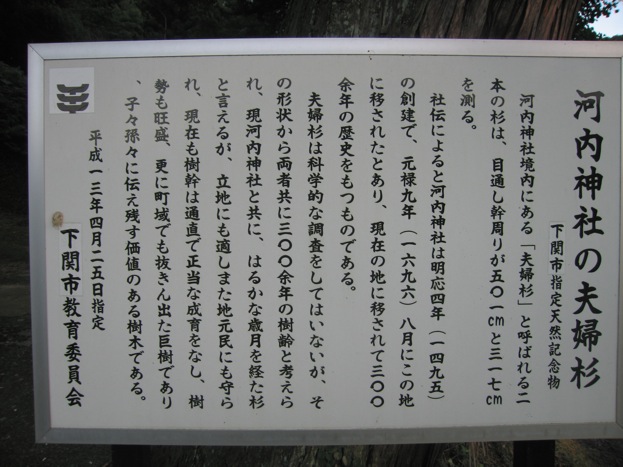 河内神社の夫婦杉
下関市指定天然記念物
河内神社境内にある「夫婦杉」と呼ばれる二
本の杉は、目通し幹周りが五〇一cmと三一七cm
を測る。
社伝によると河内神社は明応四年(一四九五)
の創建で、元禄九年(一六九六)八月にこの地
に移されたとあり、現在の地に移されて三〇〇
余年の歴史をもつものである。
夫婦杉は科学的な調査をしてはいないが、そ
の形状から両者共に三〇〇余年の樹齢と考えら
れ、現河内神社と共に、はるかな歳月を経た杉
と言えるが、立地にも適しまた地元民にも守ら
れ、現在も樹幹は通直で正当な成育をなし、樹
勢も旺盛、更に町域でも抜きん出た巨樹であり
、子々孫々に伝え残す価値のある樹木である。
平成一三年四月二五日指定
下関市教育委員会